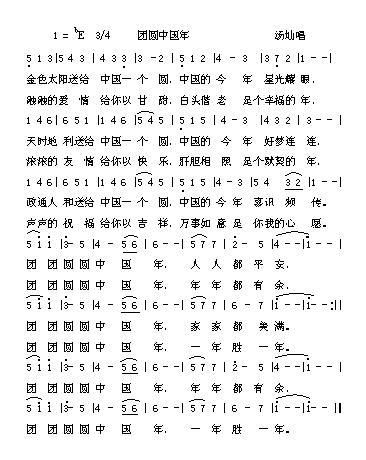 1 = ♭E 3/4 团圆中国年 汤灿唱
5 1 3 | 5 4 3 | 4 3 3 | 3 - 2 | 5 1 5 | 4 - 3 | 3 7 2 | 1 - - |
金色太阳送给 中国一 个 圆，中国的 今 年 星光耀 眼，
融融的爱 情 给你以 甘 甜，白头偕 老 是个幸福的 年，
1 4 6 | 6 5 1 | 1 4 6 | 5 4 5 | 5 1 5 | 4 - 3 | 3 7 2 | 1 - - |
天时地 利送给 中国一 个 圆，中国的 今 年 好梦连 连，
浓浓的 友 情 给你以 快 乐，肝胆相 照 是个默契的 年，
1 4 6 | 6 5 1 | 1 4 6 | 5 4 5 | 5 1 5 | 4 - 3 | 5 4 3 2 | 1 - - |
政通人 和送给 中国一 个 圆，中国的 今 年 喜讯 频 传。
声声的 祝 福 给你以 吉 祥，万事如 意 是 你我的心 愿。
5 1 1 | 3 - 5 | 4 - 5 6 | 6 - - | 5 7 7 | 2 - 5 | 4 - - | 4 - - |
团 团圆圆 中 国 年， 人 人 都 平 安，
团 团圆圆 中 国 年， 年 年 都 有 余，
5 1 1 | 3 - 5 | 4 - 5 6 | 6 - - | 5 7 7 | 6 - 7 | 1 - - | 1 - - :||
团 团圆圆 中 国 年， 家 家 都 美 满。
团 团圆圆 中 国 年， 一 年 胜 一 年。
5 1 1 | 3 - 5 | 4 - 5 6 | 6 - - | 5 7 7 | 2 - 5 | 4 - - | 4 - - |
团 团圆圆 中 国 年， 年 年 都 有 余，
5 1 1 | 3 - 5 | 4 - 5 6 | 6 - - | 5 7 7 | 6 - 7 | 1 - - | 1 - - ||
团 团圆圆 中 国 年， 一 年 胜 一 年。